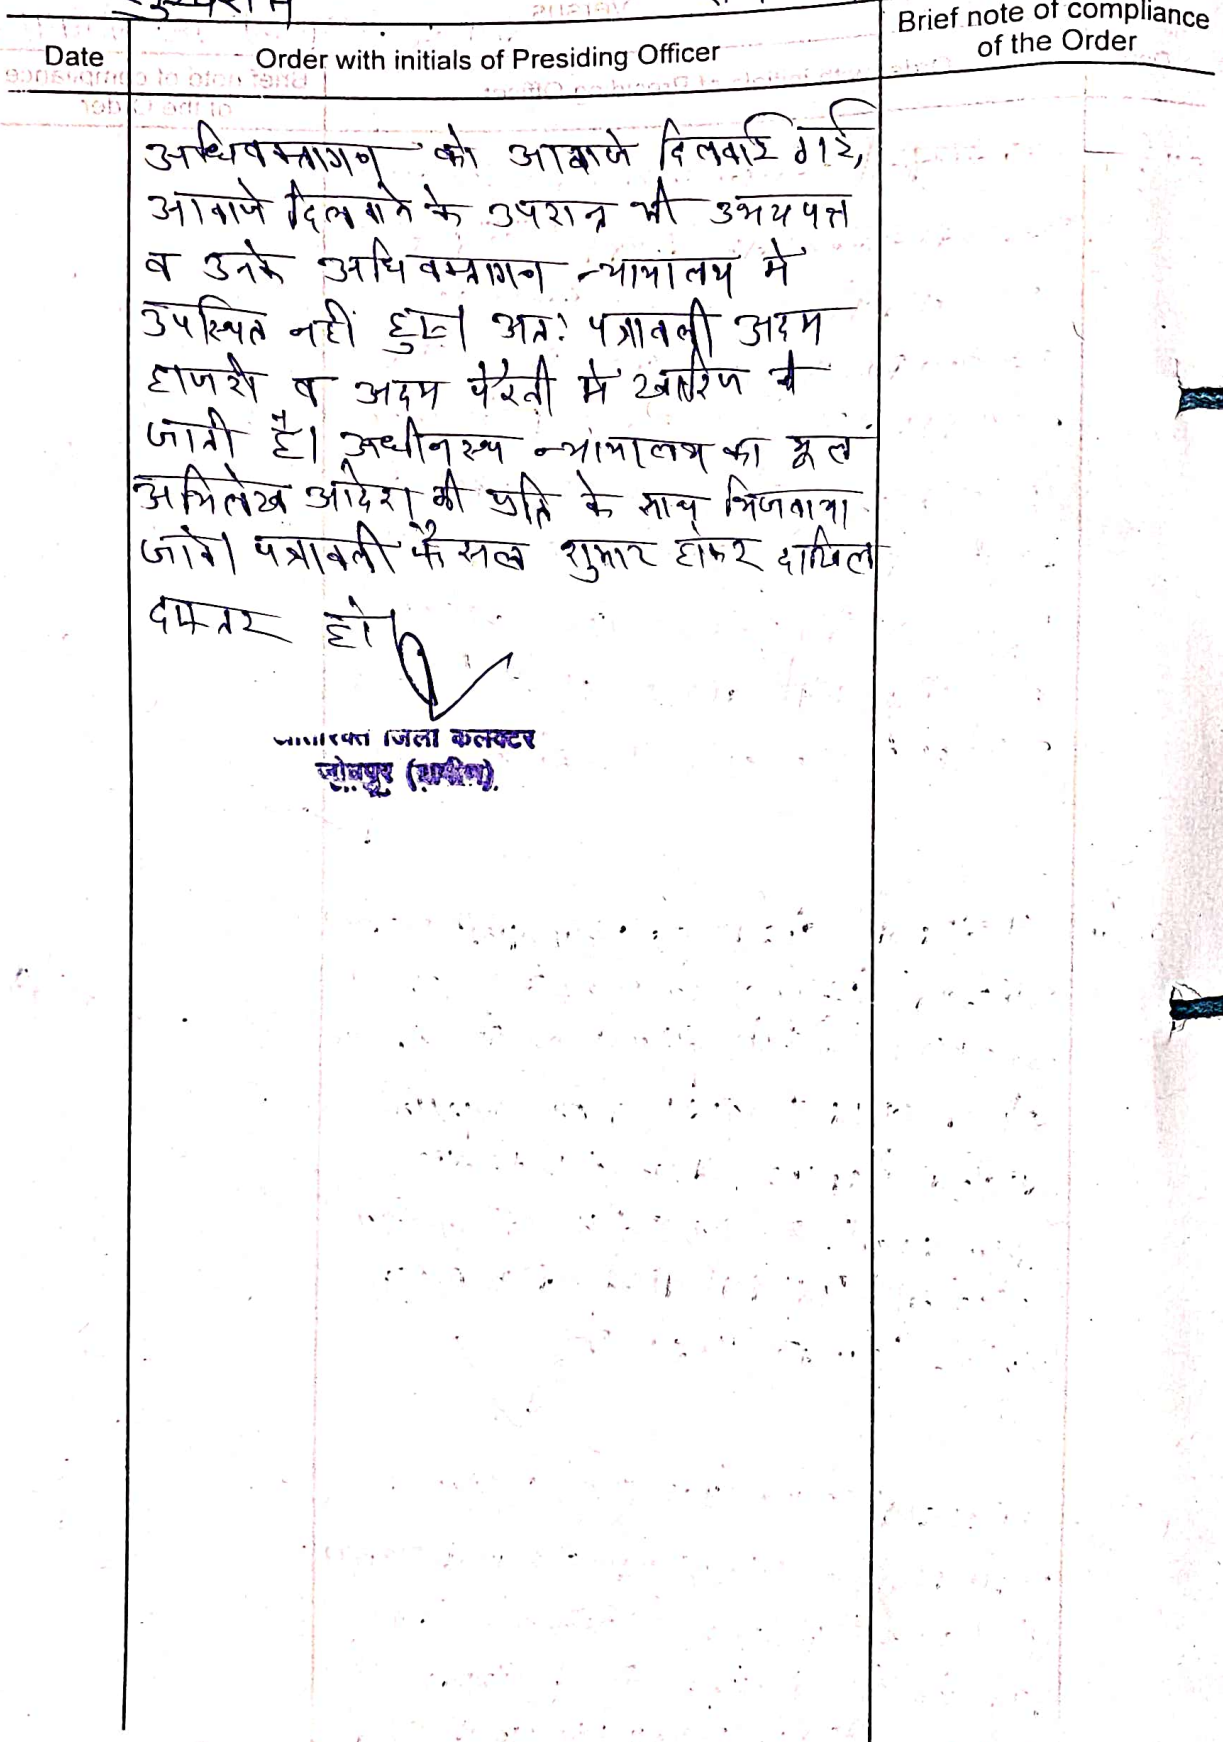 Date
Order with initials of Presiding Officer
Brief note of compliance
of the Order
अधिवक्तागण को आवाजे दिलवाई गई,
आवाजे दिलवाने के उपरान्त भी उभयपक्ष
व उनके अधिवक्तागण न्यायालय में
उपस्थित नहीं हुए। अतः पत्रावली अदम
हाजरी व अदम पैरवी में खारिज की
जाती है। अधीनस्थ न्यायालय का मूल
अभिलेख आदेश की प्रति के साथ भिजवाया
जावे। पत्रावली फैसल शुमार होकर दाखिल
दफ्तर हो।
जिला कलक्टर
जोधपुर (ग्रामीण)